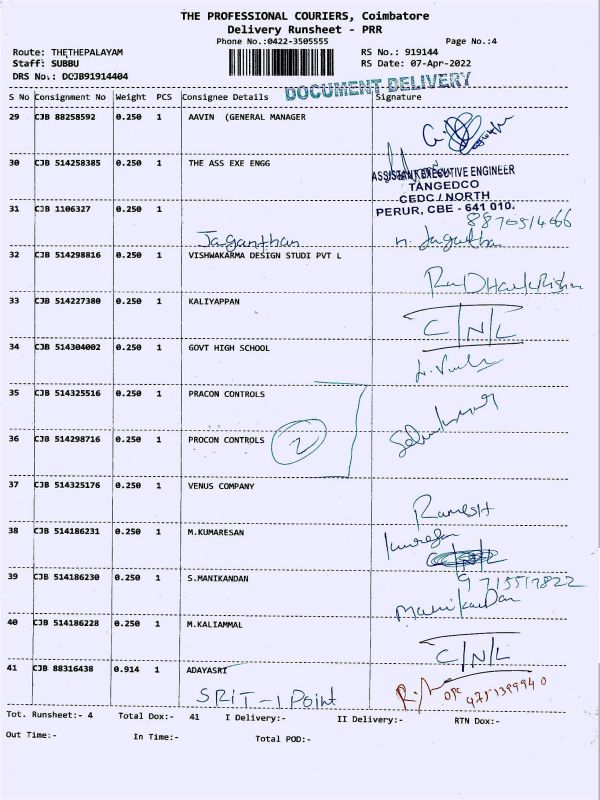 THE PROFESSIONAL COURIERS, Coimbatore
Delivery Runsheet - PRR
Phone No.:0422-3505555 Page No.:4
Route: THETHEPALAYAM RS No.: 919144
Staff: SUBBU RS Date: 07-Apr-2022
DRS No.: DCJB91914404
DOCUMENT DELIVERY
S No Consignment No Weight PCS Consignee Details Signature
29 CJB 88258592 0.250 1 AAVIN (GENERAL MANAGER
30 CJB 514258385 0.250 1 THE ASS EXE ENGG
ASSISTANT EXECUTIVE ENGINEER
TANGEDCO
CEDC / NORTH
PERUR, CBE - 641 010.
31 CJB 1106327 0.250 1
Jaganthan
32 CJB 514298816 0.250 1 VISHWAKARMA DESIGN STUDI PVT L
33 CJB 514227380 0.250 1 KALIYAPPAN
C/N/L
34 CJB 514304002 0.250 1 GOVT HIGH SCHOOL
35 CJB 514325516 0.250 1 PRACON CONTROLS
36 CJB 514298716 0.250 1 PROCON CONTROLS 2
37 CJB 514325176 0.250 1 VENUS COMPANY
Ramesh
38 CJB 514186231 0.250 1 M.KUMARESAN
39 CJB 514186230 0.250 1 S.MANIKANDAN
Manikandan
40 CJB 514186228 0.250 1 M.KALIAMMAL
C/N/L
41 CJB 88316438 0.914 1 ADAYASRI
SRIT - 1 Point
Tot. Runsheet:- 4 Total Dox:- 41 I Delivery:- II Delivery:- RTN Dox:-
Out Time:- In Time:- Total POD:-